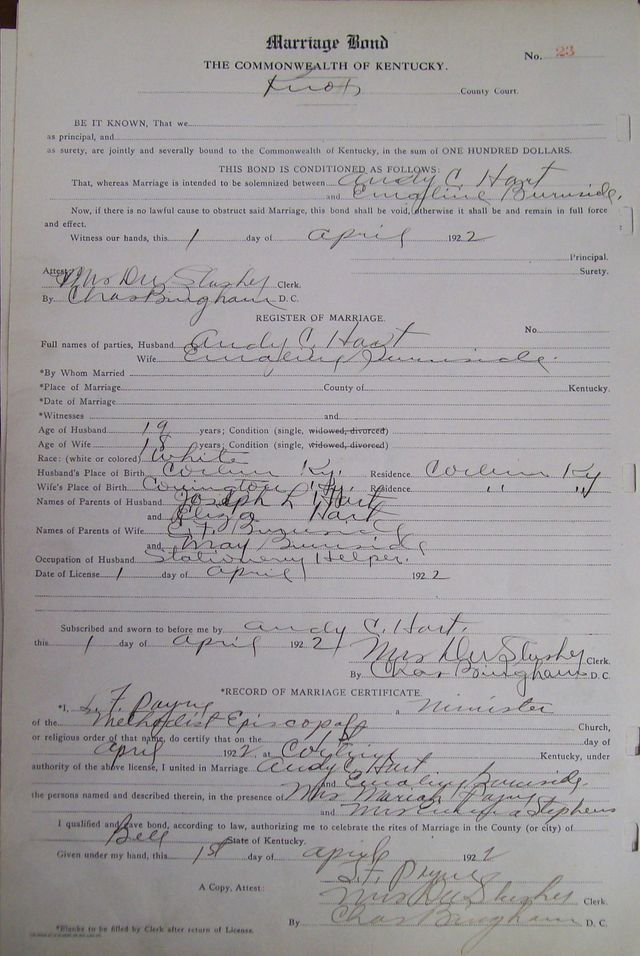 Marriage Bond
No. 23
THE COMMONWEALTH OF KENTUCKY.
Knox County Court.
BE IT KNOWN, That we
as principal, and
as surety, are jointly and severally bound to the Commonwealth of Kentucky, in the sum of ONE HUNDRED DOLLARS.
THIS BOND IS CONDITIONED AS FOLLOWS:
That, whereas Marriage is intended to be solemnized between Andy C. Hart
and Emaline Burnside.
Now, if there is no lawful cause to obstruct said Marriage, this bond shall be void, otherwise it shall be and remain in full force
and effect.
Witness our hands, this 1 day of April 1922
Principal.
Attest: Mrs D W Slusher Clerk. Surety.
By Chas Bingham D. C.
REGISTER OF MARRIAGE.
No.
Full names of parties, Husband Andy C. Hart
Wife Emaline Burnside.
*By Whom Married
*Place of Marriage County of Kentucky.
*Date of Marriage
*Witnesses and
Age of Husband 19 years; Condition (single, widowed, divorced)
Age of Wife 18 years; Condition (single, widowed, divorced)
Race: (white or colored) White
Husband's Place of Birth Corbin Ky. Residence Corbin Ky
Wife's Place of Birth Covington Ky. Residence " "
Names of Parents of Husband Joseph L Hart
and Eliza Hart
Names of Parents of Wife E. F. Burnside
and May Burnside
Occupation of Husband Stationery Helper.
Date of License 1 day of April 1922
Subscribed and sworn to before me by Andy C. Hart.
this 1 day of April 1922 Mrs D W Slusher Clerk.
By Chas Bingham D. C.
*RECORD OF MARRIAGE CERTIFICATE.
*I, S. F. Payne a Minister
of the Methodist Episcopal Church,
or religious order of that name, do certify that on the 1st day of
April 1922 at Kentucky, under
authority of the above license, I united in Marriage Andy C. Hart
and Emaline Burnside
the persons named and described therein, in the presence of Mrs Mariah Payne
and Mrs Stephens
I qualified and gave bond, according to law, authorizing me to celebrate the rites of Marriage in the County (or city) of
Bell State of Kentucky.
Given under my hand, this 1st day of April 1922
S. F. Payne
A Copy, Attest: Mrs D W Slusher Clerk.
By Chas Bingham D. C.
*Blanks to be filled by Clerk after return of License.